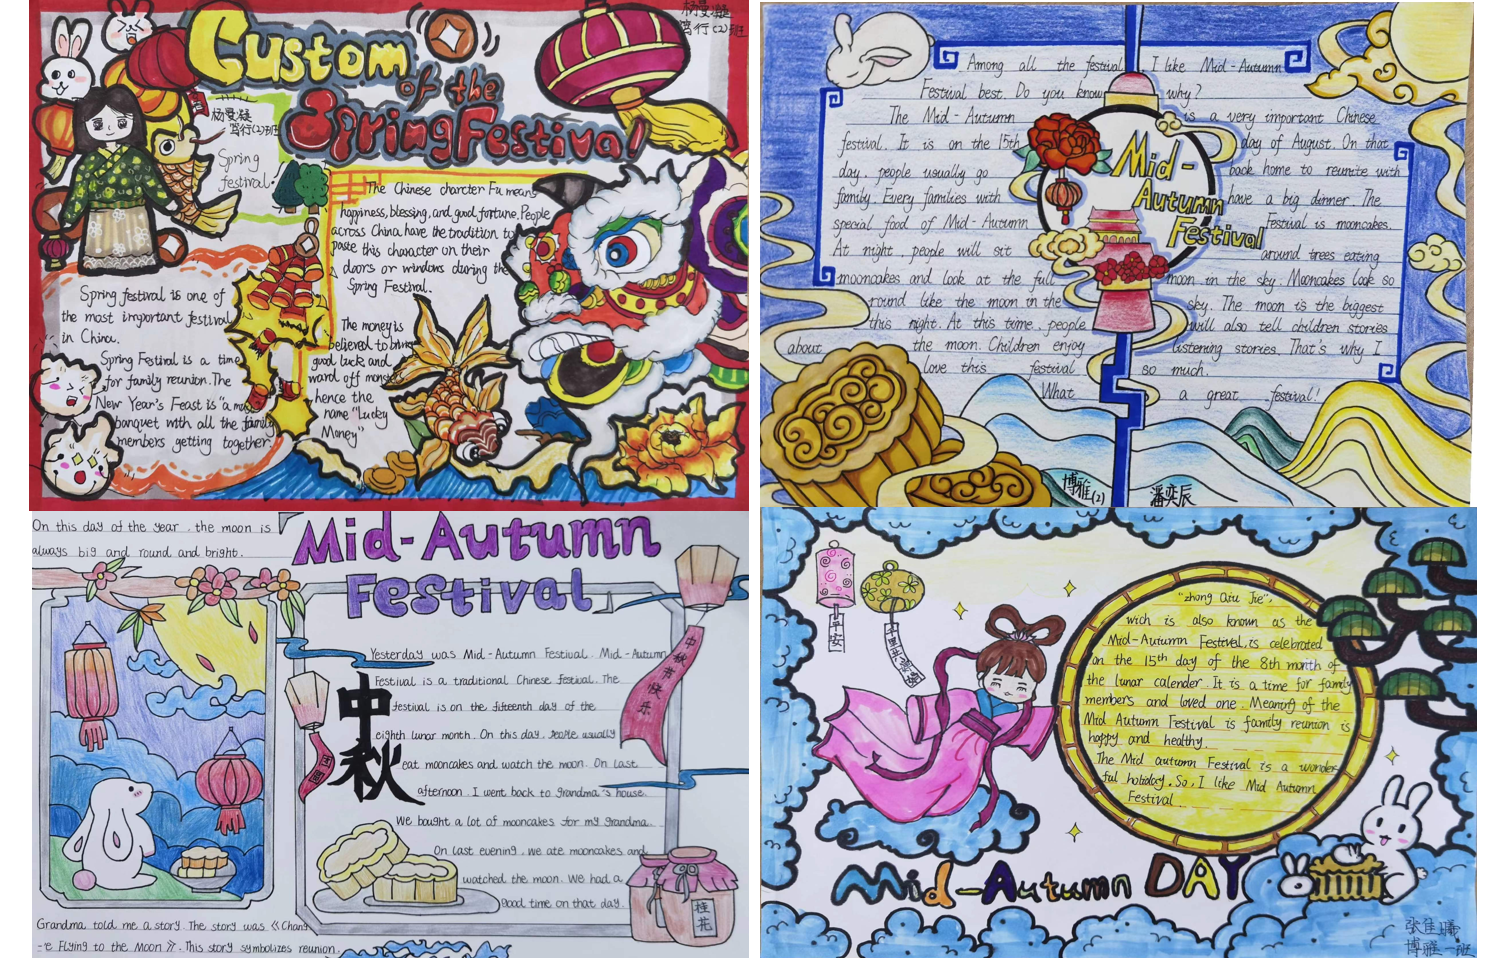 Custom
of the
Spring Festival
杨曼凝
笃行(2)班
杨曼凝
笃行(2)班
Spring
festival!
The Chinese charcter Fu means
happiness, blessing, and good fortune. People
across China have the tradition to
paste this character on their
doors or windows during the
Spring Festival.
Spring festival is one of
the most important festival
in China.
Spring Festinal is a time
for family reunion. The
New Year's Feast is "a must
banquet with all the family
members getting together.
The money is
believed to bring
good luck and
ward off monsters
hence the
name "Lucky
Money"
Among all the festival I like Mid-Autumn
Festival best. Do you know why?
The Mid-Autumn is a very important Chinese
festival. It is on the 15th day of August. On that
day, people usually go back home to reunite with
family. Every families with have a big dinner. The
special food of Mid-Autumn Festival is mooncakes.
At night, people will sit around trees eating
mooncakes and look at the full moon in the sky. Mooncakes look so
round like the moon in the sky. The moon is the biggest
this night. At this time, people will also tell children stories
about the moon. Children enjoy listening stories. That's why I
love this festival so much.
What a great festival!
Mid-
Autumn
Festival
博雅(2)
潘奕辰
On this day of the year, the moon is
always big and round and bright.
Mid-Autumn
Festival
Yesterday was Mid-Autumn Festival. Mid-Autumn
Festival is a traditional Chinese festival. The
festival is on the fifteenth day of the
eighth lunar month. On this day, people usually
eat mooncakes and watch the moon. On last
afternoon, I went back to grandma's house.
We bought a lot of mooncakes for my grandma.
On last evening, we ate mooncakes and
watched the moon. We had a
good time on that day.
中秋
中秋节快乐
桂花
Grandma told me a story. The story was 《Chang
-'e Flying to the Moon》. This story symbolizes reunion.
平安
"zhong Qiu Jie",
wich is also known as the
Mid-Autumn Festival, is celebrated
on the 15th day of the 8th month of
the lunar calender. It is a time for family
members and loved one. Meaning of the
Mid Autumn Festival is family reunion is
happy and healthy.
The Mid autumn Festival is a wonder-
ful holiday. So, I like Mid Autumn
Festival.
Mid-Autumn DAY
博雅一班